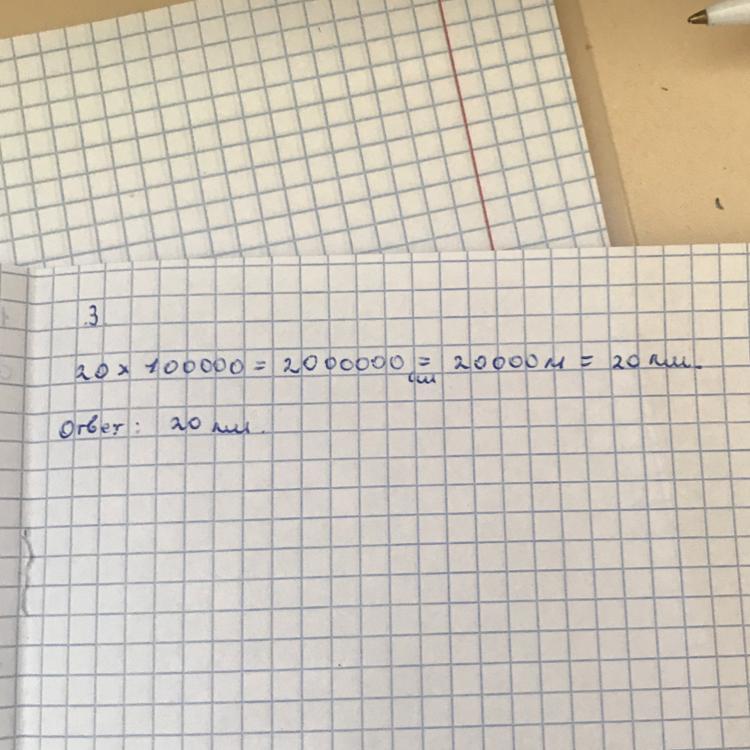 3
20 × 100000 = 2000000 см = 20000 м = 20 км.
Ответ: 20 км.